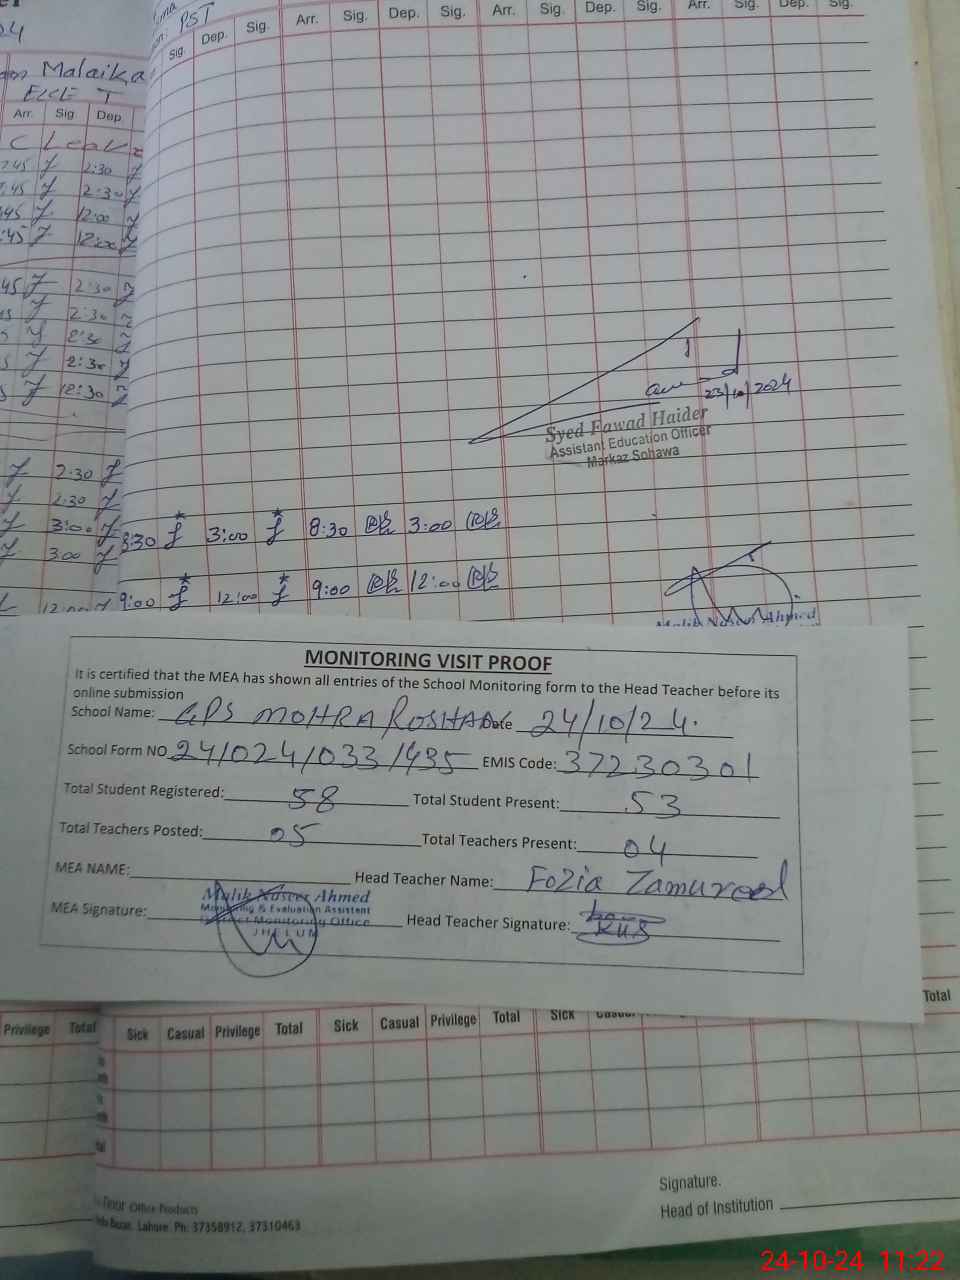 Sig. Dep. Sig. Arr. Sig. Dep. Sig. Arr. Sig. Dep. Sig. Arr. Sig. Dep. Sig.
PST
Malaika
Arr. Sig. Dep.
C Leave
2:30
2:30
12:00
12:00
2:30
2:30
2:30
2:30
12:30
23/10/2024
Syed Fawad Haider
Assistant Education Officer
Markaz Sohawa
2:30
2:30
3:00
3:00
8:30 3:00 8:30 3:00
9:00 12:00 9:00 12:00
Malik Naseer Ahmed
MONITORING VISIT PROOF
It is certified that the MEA has shown all entries of the School Monitoring form to the Head Teacher before its
online submission
School Name: GPS MOHRA ROSHAN Date 24/10/24.
School Form NO 24/024/033/435 EMIS Code: 37230301
Total Student Registered: 58 Total Student Present: 53
Total Teachers Posted: 05 Total Teachers Present: 04
MEA NAME: Head Teacher Name: Fozia Zamurood
Malik Naseer Ahmed
Monitoring & Evaluation Assistant
MEA Signature: District Monitoring Office Head Teacher Signature:
JHELUM
Total
Privilege Total Sick Casual Privilege Total Sick Casual Privilege Total Sick Casual
Office Products
Lahore. Ph: 37358912, 37310463
Signature.
Head of Institution
24-10-24 11:22